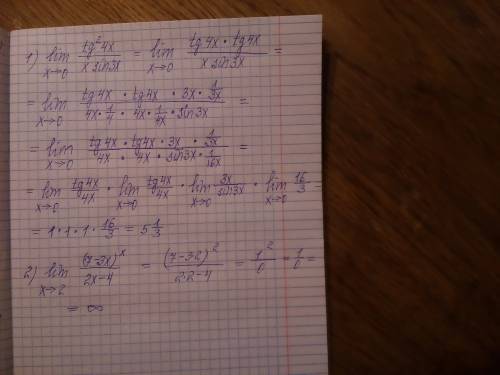 1) lim x→0 tg²4x / x sin3x = lim x→0 tg4x · tg4x / x sin3x =
= lim x→0 tg4x · tg4x · 3x · 1/3x / 4x · 1/4 · 4x · 1/4x · sin3x =
= lim x→0 tg4x · tg4x · 3x · 1/3x / 4x · 4x · sin3x · 1/16x =
= lim x→0 tg4x/4x · lim x→0 tg4x/4x · lim x→0 3x/sin3x · lim x→0 16/3 =
= 1 · 1 · 1 · 16/3 = 5 1/3
2) lim x→2 (7-3x)^x / 2x-4 = (7-32)² / 22-4 = 1²/0 = 1/0 =
= ∞